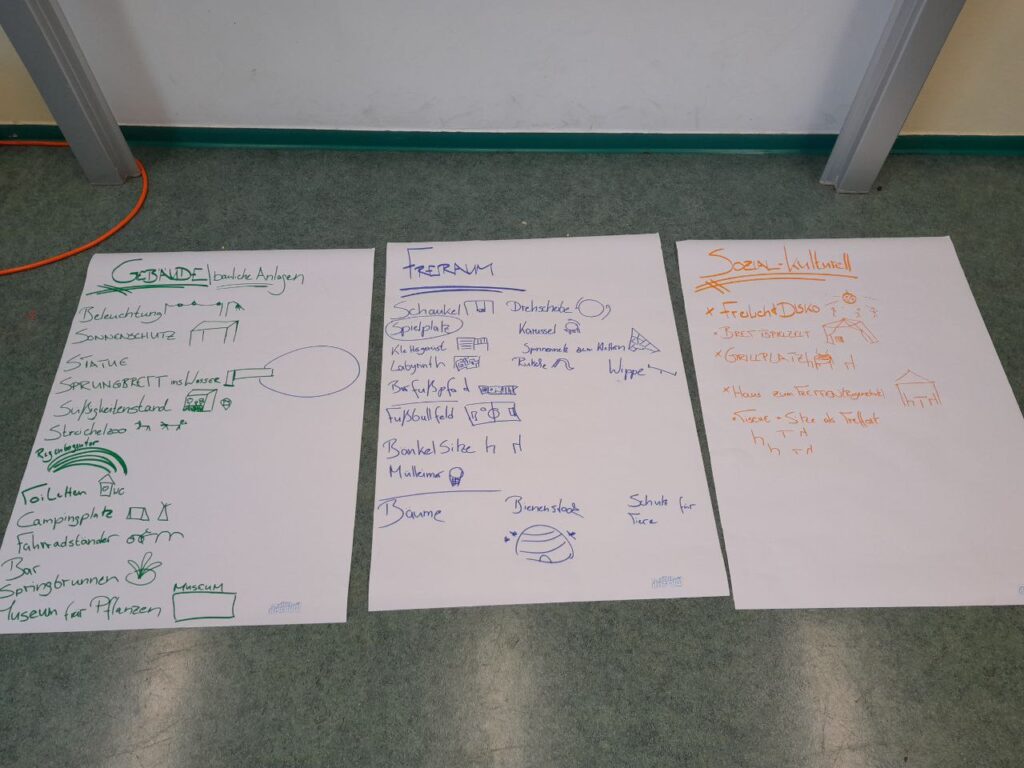 GEBÄUDE | bauliche Anlagen
Beleuchtung
SONNENSCHUTZ
STATUE
SPRUNGBRETT ins Wasser
Süßigkeitenstand
Streichelzoo
Regenbogentor
Toiletten WC
Campingplatz
Fahrradständer
Bar
Springbrunnen
Museum für Pflanzen MUSEUM
FREIRAUM
Schaukel Drehscheibe
Spielplatz Karussel
Klettergerüst Spinnennetz zum Klettern
Labyrinth Rutsche Wippe
Barfußpfad
Fußballfeld
Bänke/Sitze
Mülleimer
Bäume Bienenstock Schutz für Tiere
SOZIAL-kulturell
× Freilicht DISKO
• BRETTSPIELZELT
× GRILLPLATZ
× Haus zum TREFFEN
• TISCHE + Sitze als Treffort